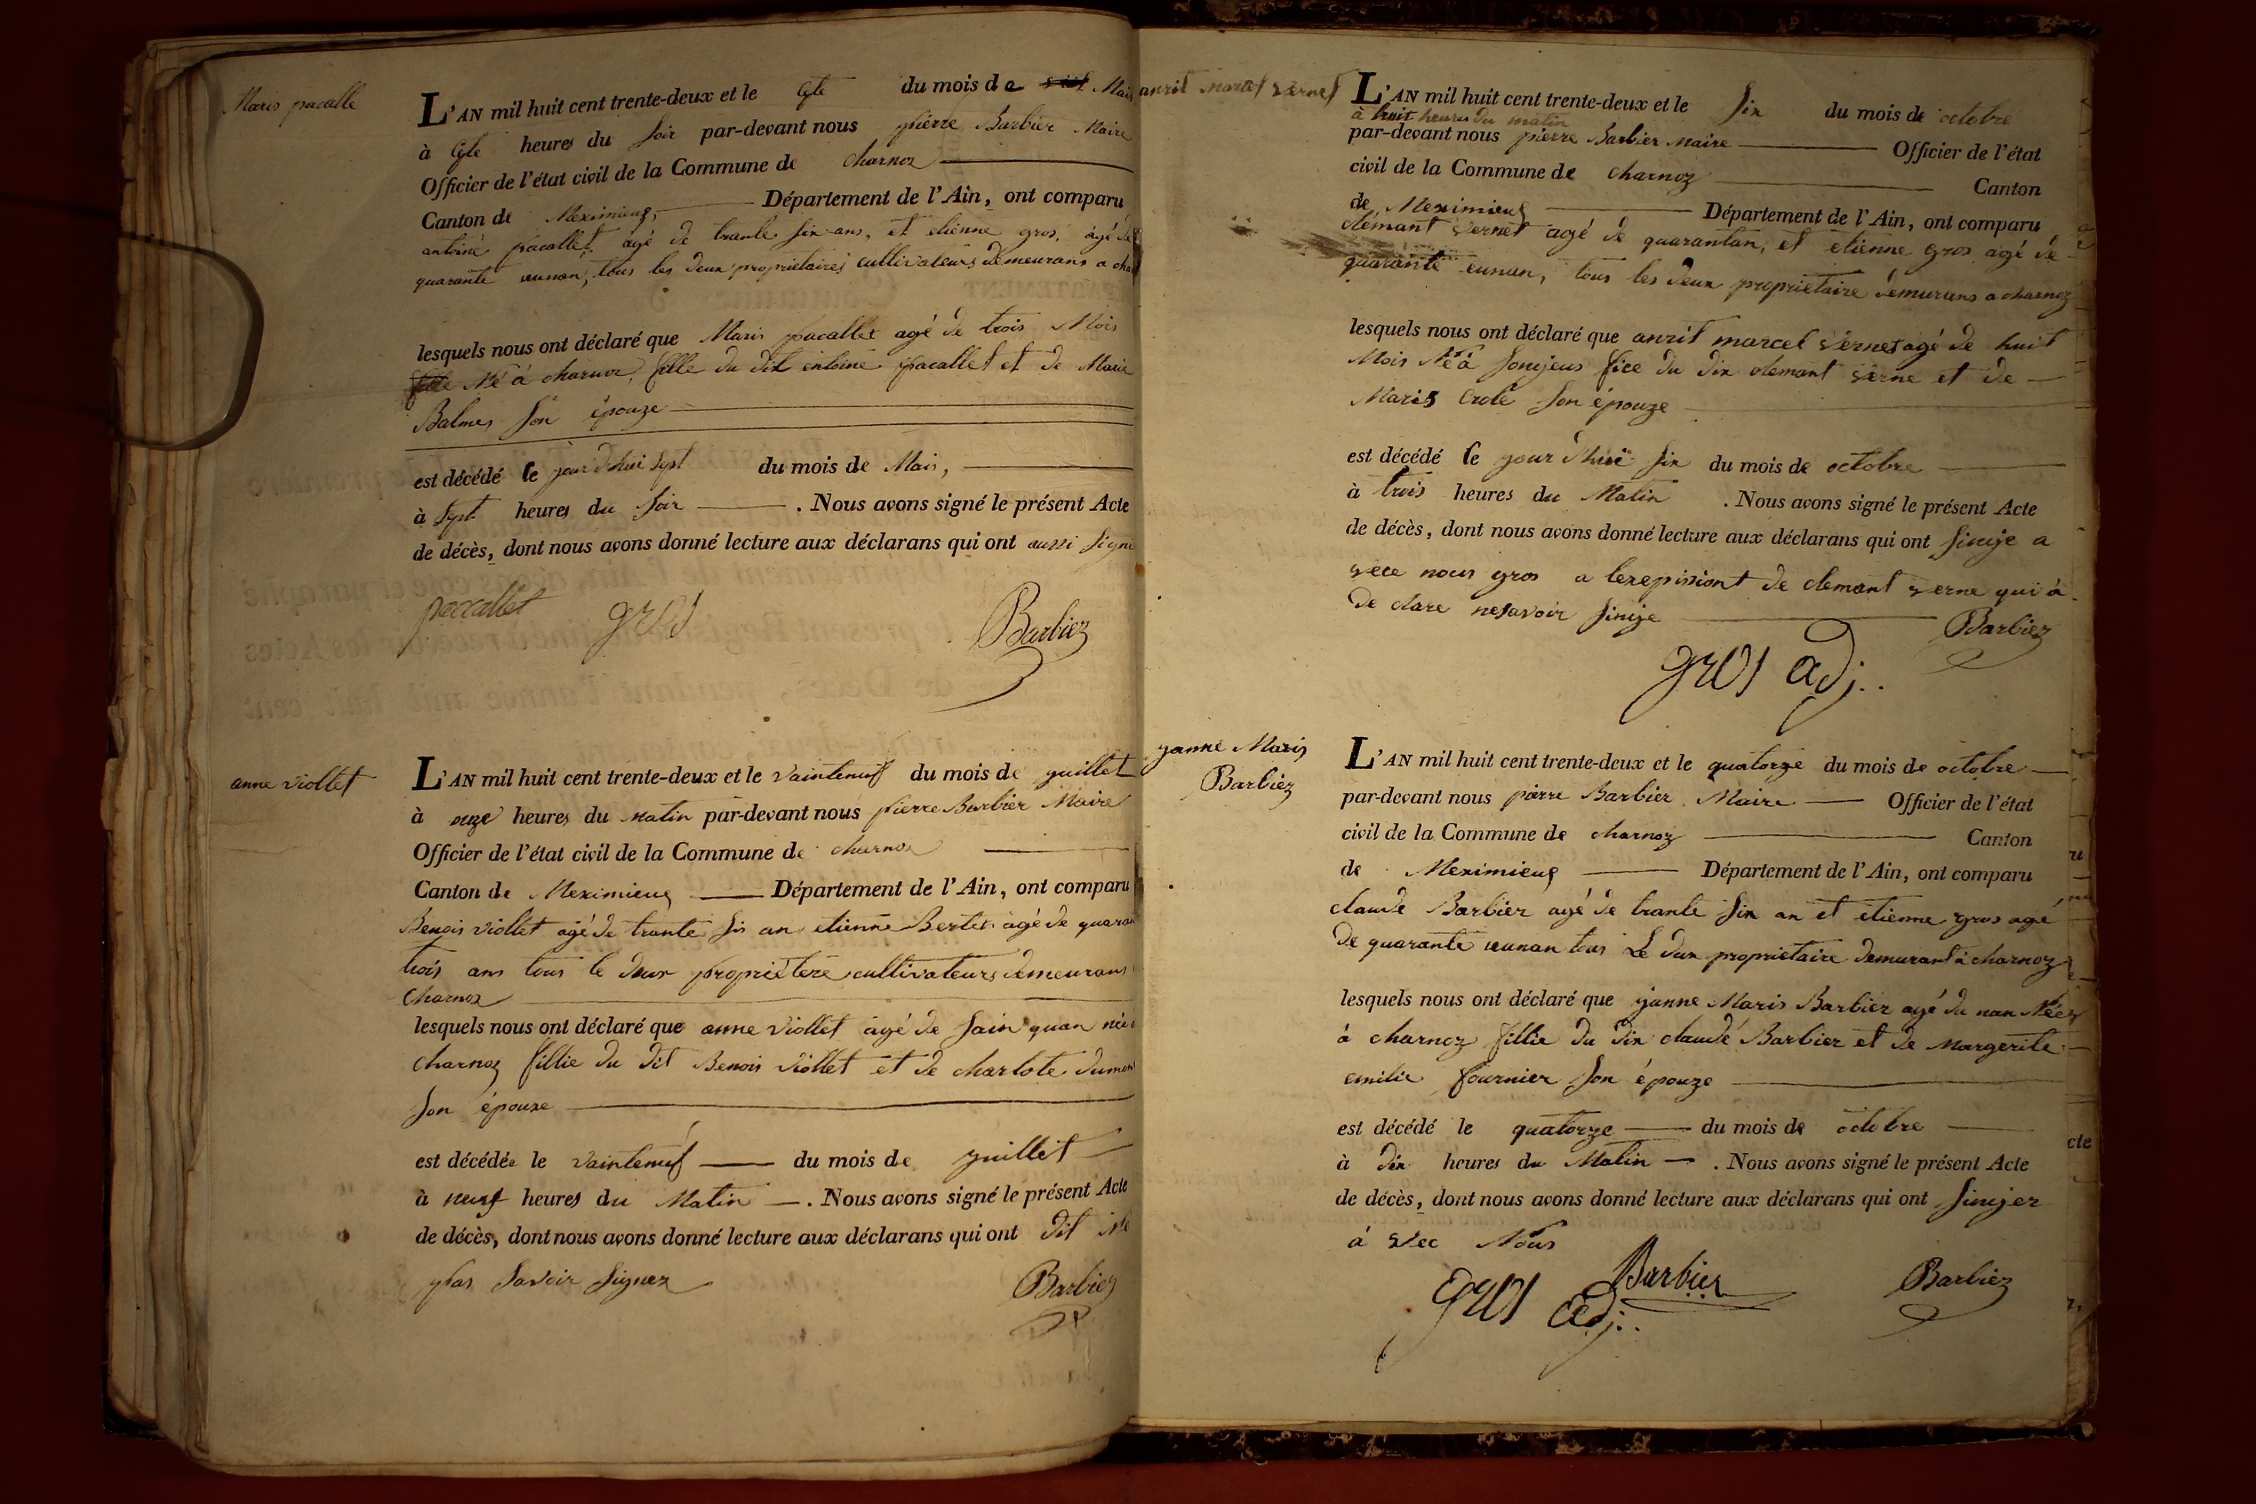 Maris pacalle
L'AN mil huit cent trente-deux et le du mois de Mais
à heures du soir par-devant nous pierre Barbier Maire
Officier de l'état civil de la Commune de charnoz
Canton de Meximieux, Département de l'Ain, ont comparu
antoine pacallet, agé de trante six ans, et etienne gros, agé de
quarante eunan, tous les deux propriétaires cultivateurs demeurans a
lesquels nous ont déclaré que Maris pacallet agé de trois Mois
Né à charnoz, fille du dit antoine pacallet et de Marie
Balmes son épouze
est décédé le jour d'hui sept du mois de Mais,
à sept heures du soir . Nous avons signé le présent Acte
de décès, dont nous avons donné lecture aux déclarans qui ont aussi signé
paccallet gros Barbiez
anne viollet
L'AN mil huit cent trente-deux et le vainteneuf du mois de juillet
à onze heures du matin par-devant nous pierre Barbier Maire
Officier de l'état civil de la Commune de charnoz
Canton de Meximieux Département de l'Ain, ont comparu
Benois viollet agé de trante six an etienne Berlet agé de
trois ans tous le deux cultivateurs demeurans
charnoz
lesquels nous ont déclaré que anne viollet agé de sain quan née
charnoz fillie du dit Benois viollet et de charlote dumont
son épouxe
est décédée le vainteneuf du mois de juillet
à neuf heures du Matin . Nous avons signé le présent Acte
de décès, dont nous avons donné lecture aux déclarans qui ont dit ne
pas savoir signez
Barbiez
anrit marcel vernet
L'AN mil huit cent trente-deux et le six du mois de octobre
à huit heures du matin
par-devant nous pierre Barbier maire Officier de l'état
civil de la Commune de charnoz Canton
de Meximieux Département de l'Ain, ont comparu
clémant vernet agé de quarantan, et etienne gros agé de
quarante eunan, tous les deux propriétaire demurans a charnoz
lesquels nous ont déclaré que anrit marcel vernet agé de huit
Mois Né à du dix clemant verne et de
Maris Crole son épouze
est décédé le jour d'hui six du mois de octobre
à trois heures du Matin . Nous avons signé le présent Acte
de décès, dont nous avons donné lecture aux déclarans qui ont sinije a
vece nous gros a de clemant verne qui à
de clare nesavoir sinije
Barbiez
gros adj..
janne Maris
Barbiez
L'AN mil huit cent trente-deux et le quatorze du mois de octobre
par-devant nous pierre Barbier Maire Officier de l'état
civil de la Commune de charnoz Canton
de Meximieux Département de l'Ain, ont comparu
claude Barbier agé de trante six an et etienne gros agé
de quarante eunan tous Le dux propriétaire demurant à charnoz
lesquels nous ont déclaré que janne Maris Barbier agé du nan Née
à charnoz fillie du dix claude Barbier et de Margerite
emilie fournier son épouze
est décédé le quatorze du mois de octobre
à dix heures du Matin . Nous avons signé le présent Acte
de décès, dont nous avons donné lecture aux déclarans qui ont sinijer
à vec Nous
gros adj.. Barbier Barbiez
cte